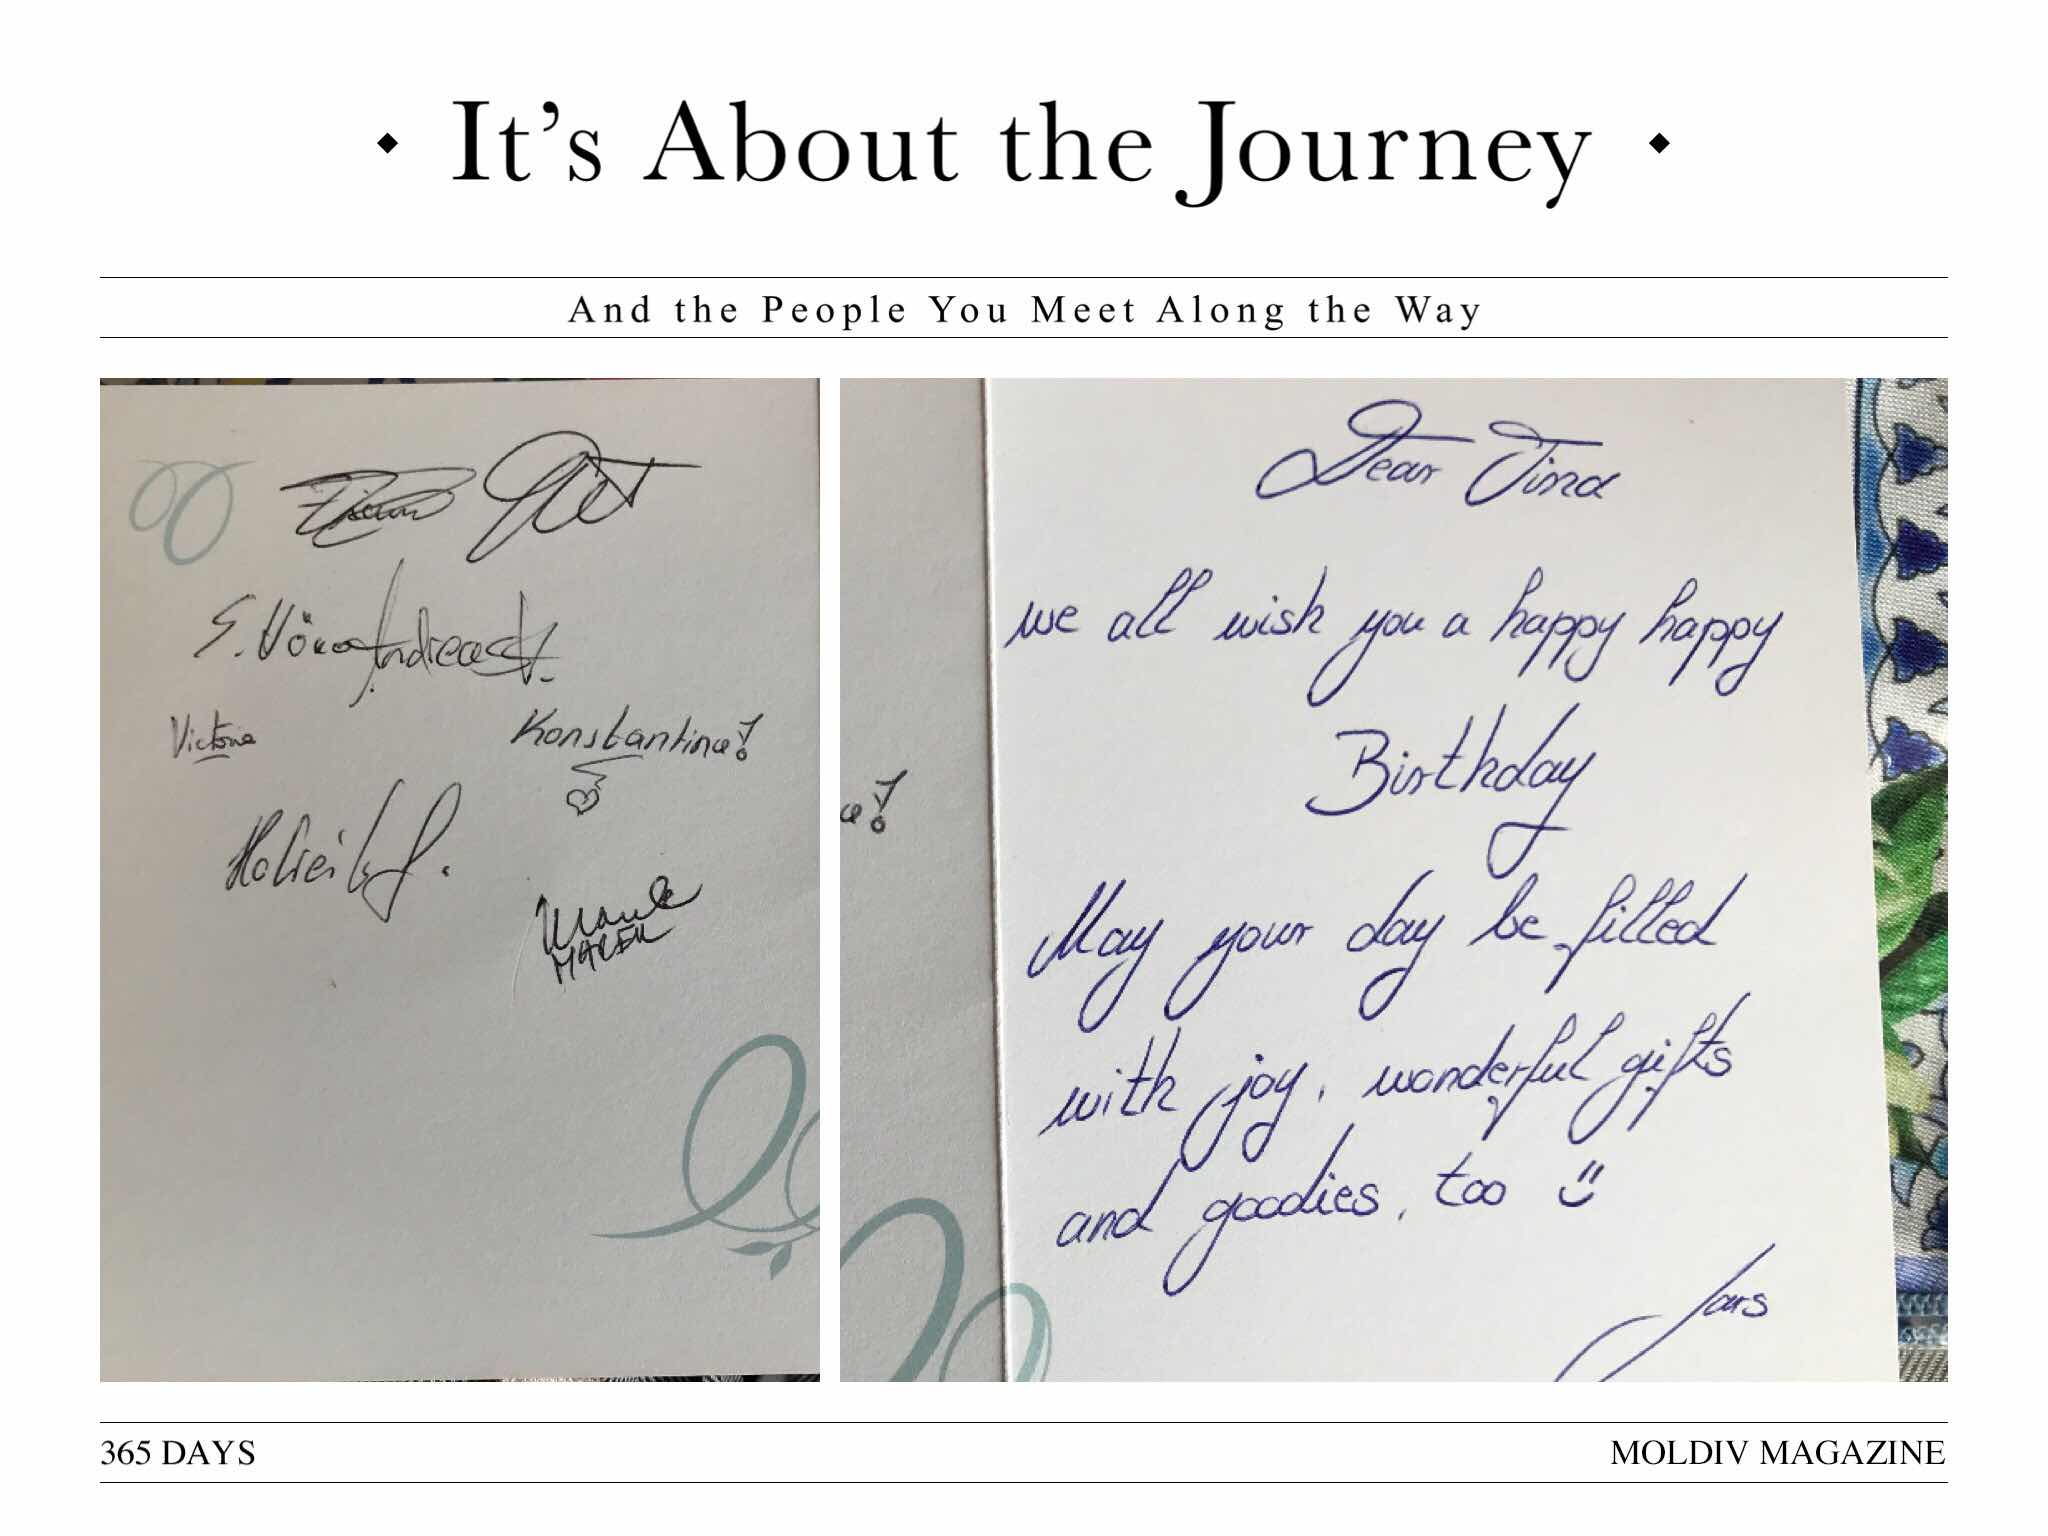 It's About the Journey
And the People You Meet Along the Way
Andreas H.
Victoria
Konstantina!
MAREK
a!
Dear Tina
we all wish you a happy happy
Birthday
May your day be filled
with joy, wonderful gifts
and goodies, too
365 DAYS
MOLDIV MAGAZINE